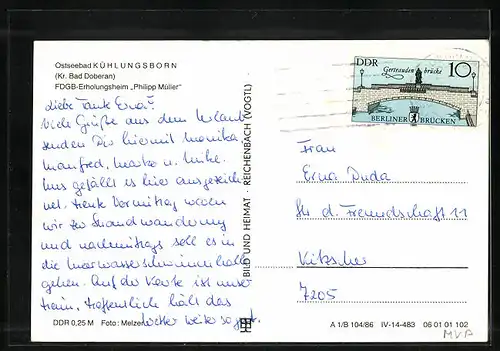 Ostseebad KÜHLUNGSBORN
(Kr. Bad Doberan)
FDGB-Erholungsheim „Philipp Müller"
Liebe Tante Erna!
Viele Grüße aus dem Urlaub
senden Dir hiermit Monika,
Manfred, Maike u. Imke.
Uns gefällt es hier ausgezeich
net. Heute Vormittag waren
wir zur Strandwanderung
und nachmittags soll es in
die Meerwasserschwimmhalle
gehen. Auf der Karte ist unser
Heim, hoffentlich hält das
Wetter weiter so gut.
DDR 0,25 M Foto: Melzer
BILD UND HEIMAT · REICHENBACH (VOGTL)
DDR
Gertraudenbrücke
10
BERLINER BRÜCKEN
Frau
Erna Duda
Str d. Freundschaft 11
Kitzscher
7205
A 1/B 104/86 IV-14-483 06 01 01 102
MVP